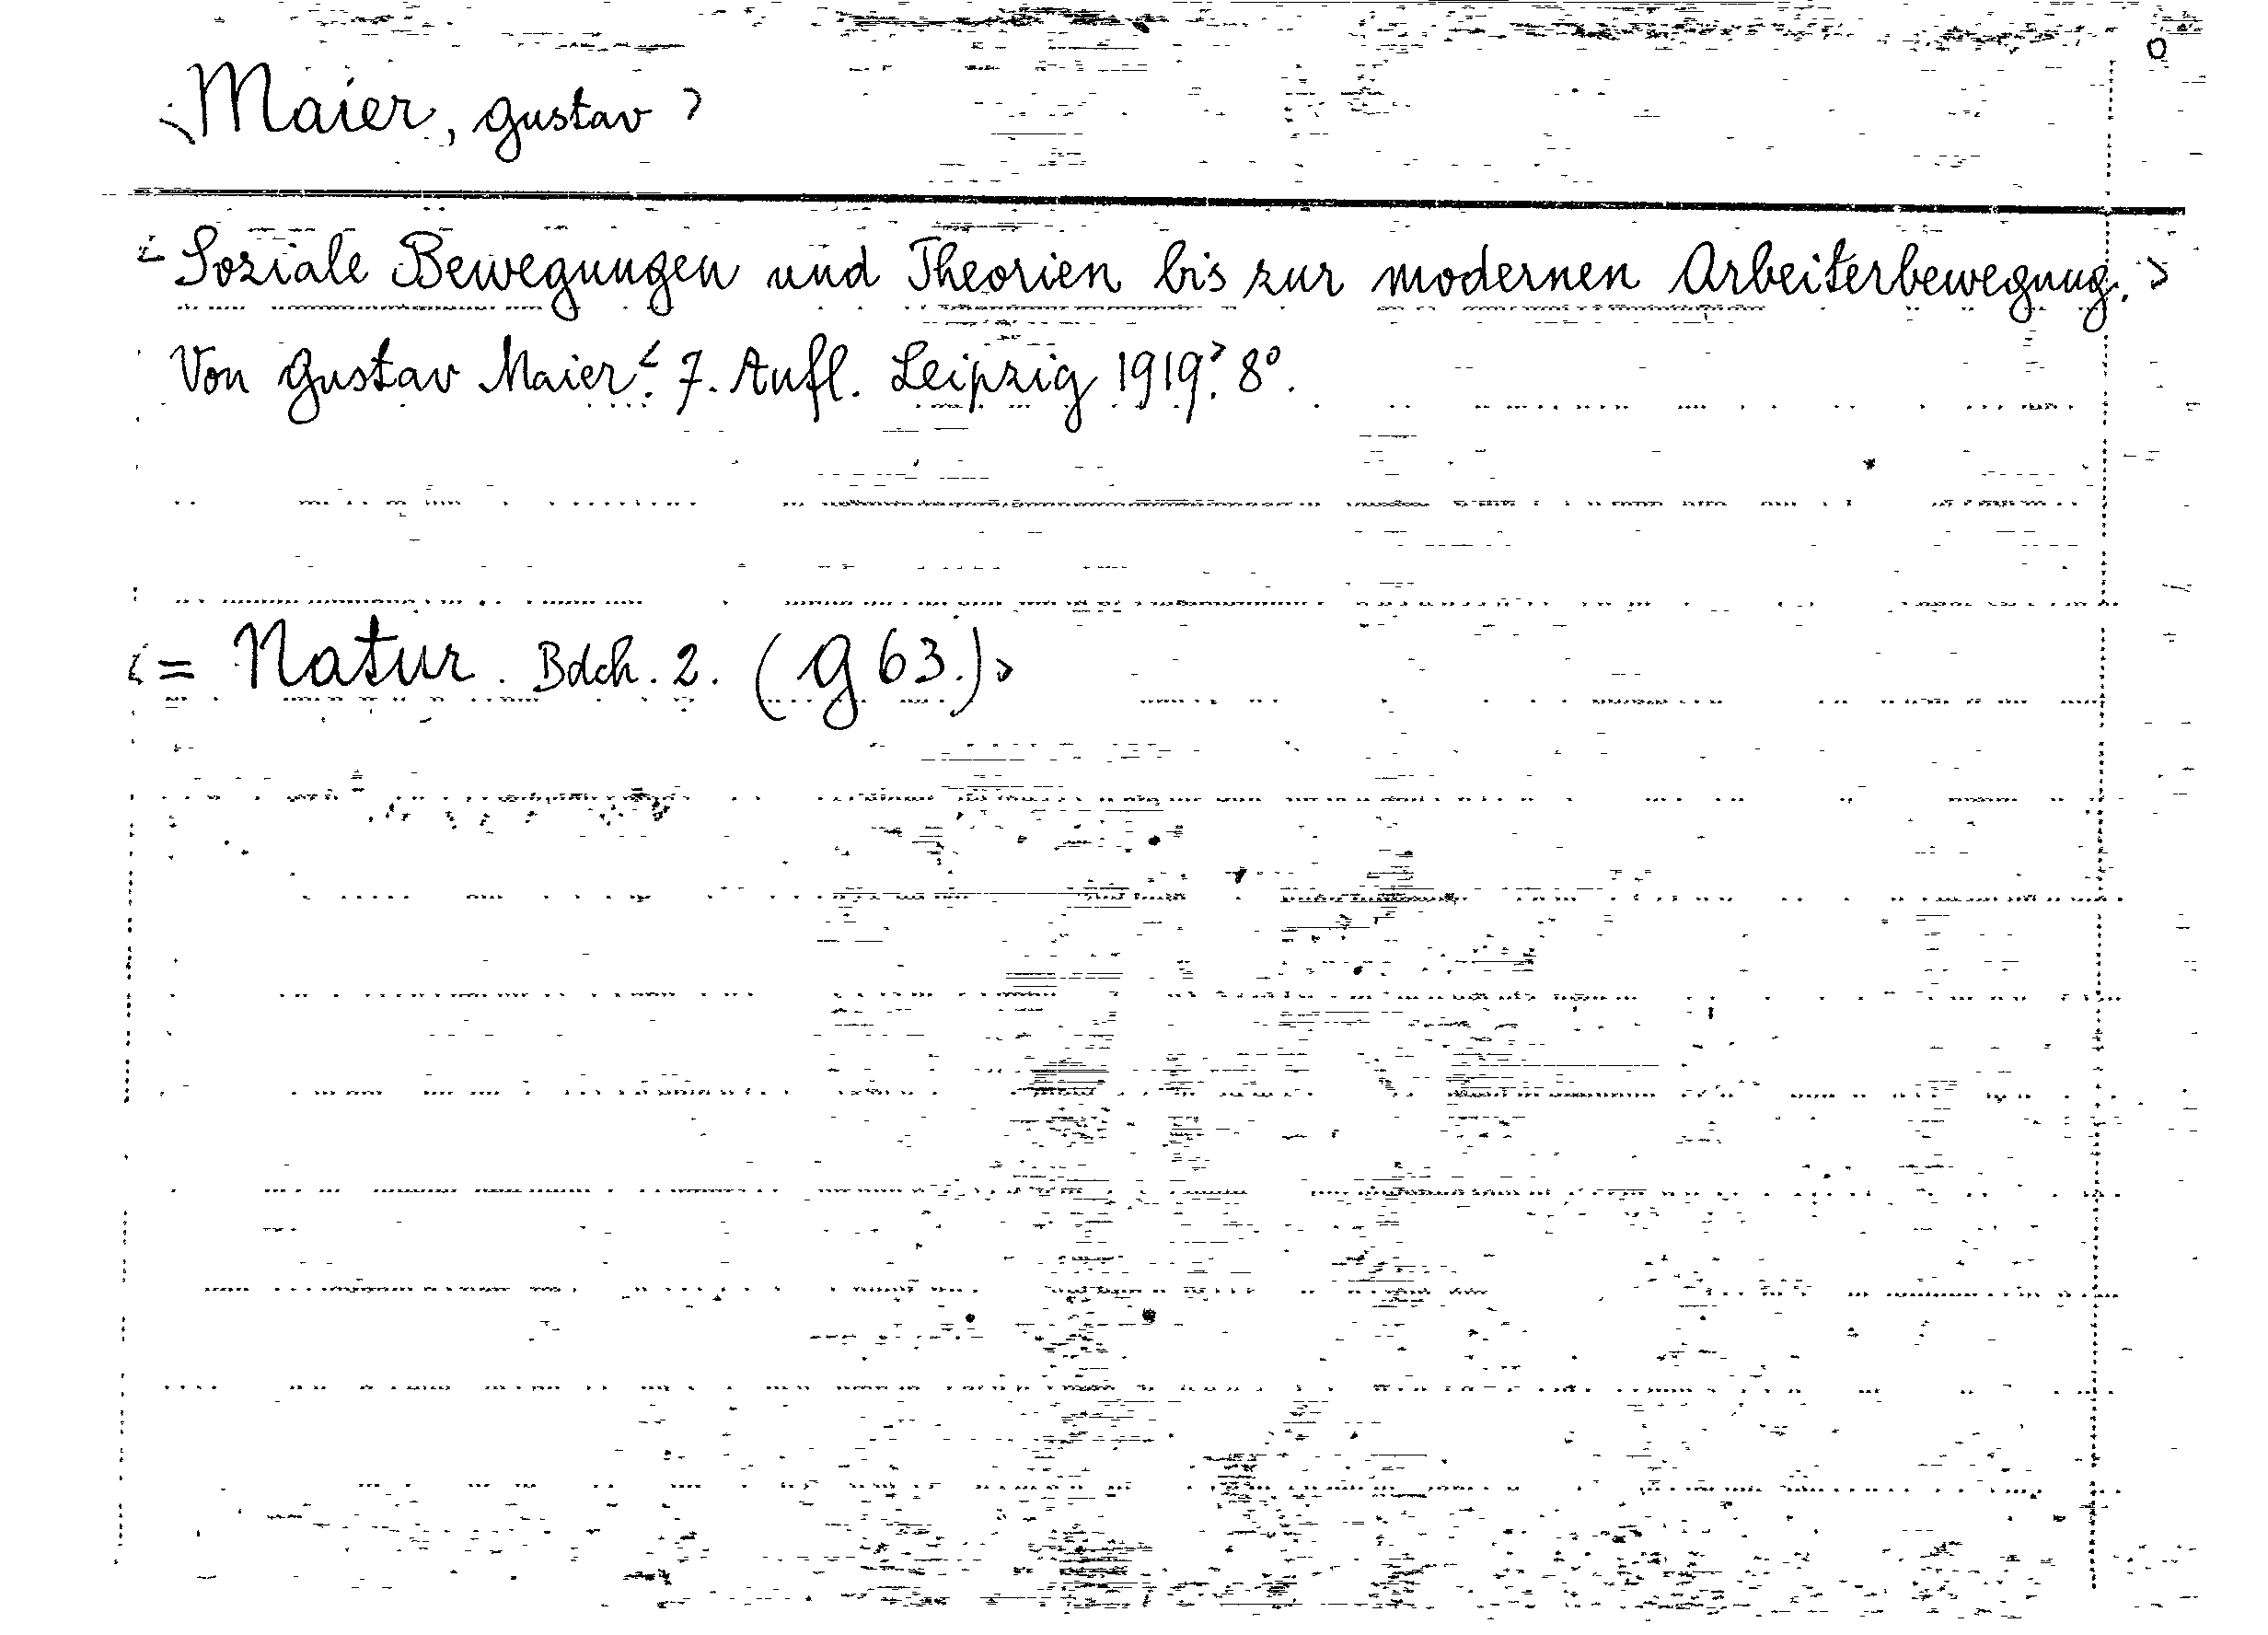 <Maier, Gustav>
<Soziale Bewegungen und Theorien bis zur modernen Arbeiterbewegung.>
Von Gustav Maier<. 7. Aufl. Leipzig 1919>. 8°.
<= Natur. Bdch. 2. (G 63.)>